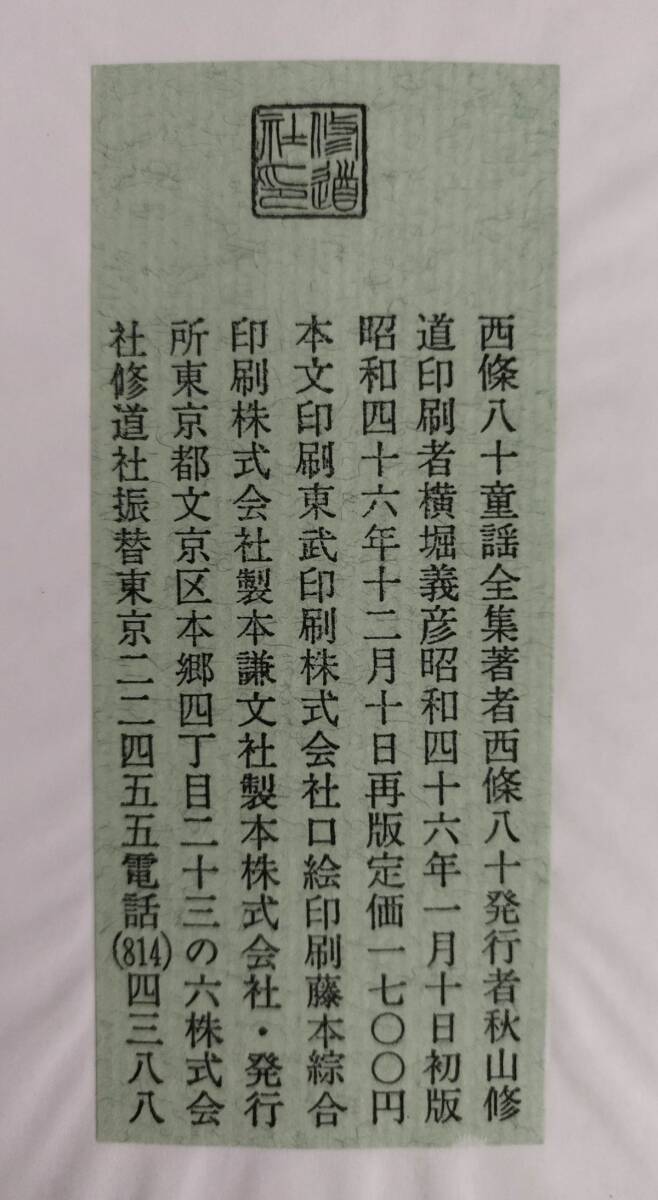 修道
社印
西條八十童謡全集著者西條八十発行者秋山修
道印刷者横堀義彦昭和四十六年一月十日初版
昭和四十六年十二月十日再版定価一七〇〇円
本文印刷東武印刷株式会社口絵印刷藤本綜合
印刷株式会社製本謙文社製本株式会社・発行
所東京都文京区本郷四丁目二十三の六株式会
社修道社振替東京二二四五五電話(814)四三八八